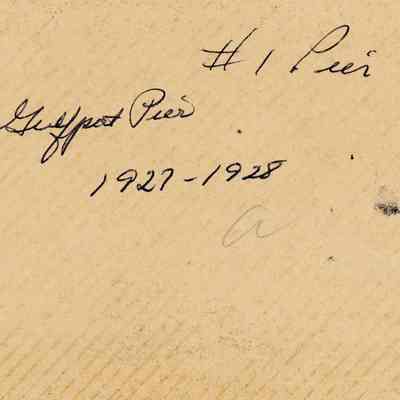 #1 Pier
Gulfport Pier
1927-1928
a